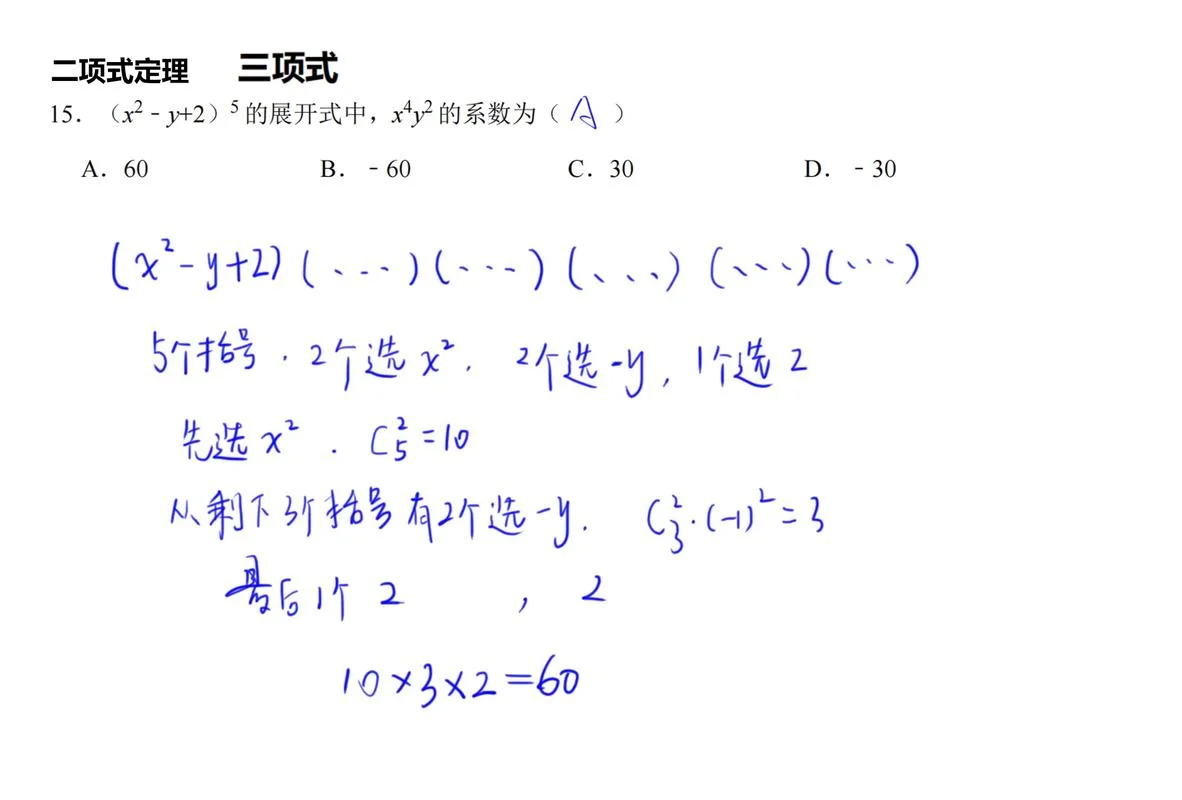 二项式定理 三项式
15．（x²﹣y+2）⁵的展开式中，x⁴y²的系数为（ A ）
A．60 B．﹣60 C．30 D．﹣30
(x²-y+2)(、---)(、---)(、、、、)(、、、、)(、---)
5个括号．2个选x²．2个选-y，1个选2
先选x²．C₅²=10
从剩下3个括号有2个选-y．C₃²·(-1)²=3
最后1个2，2
10×3×2=60